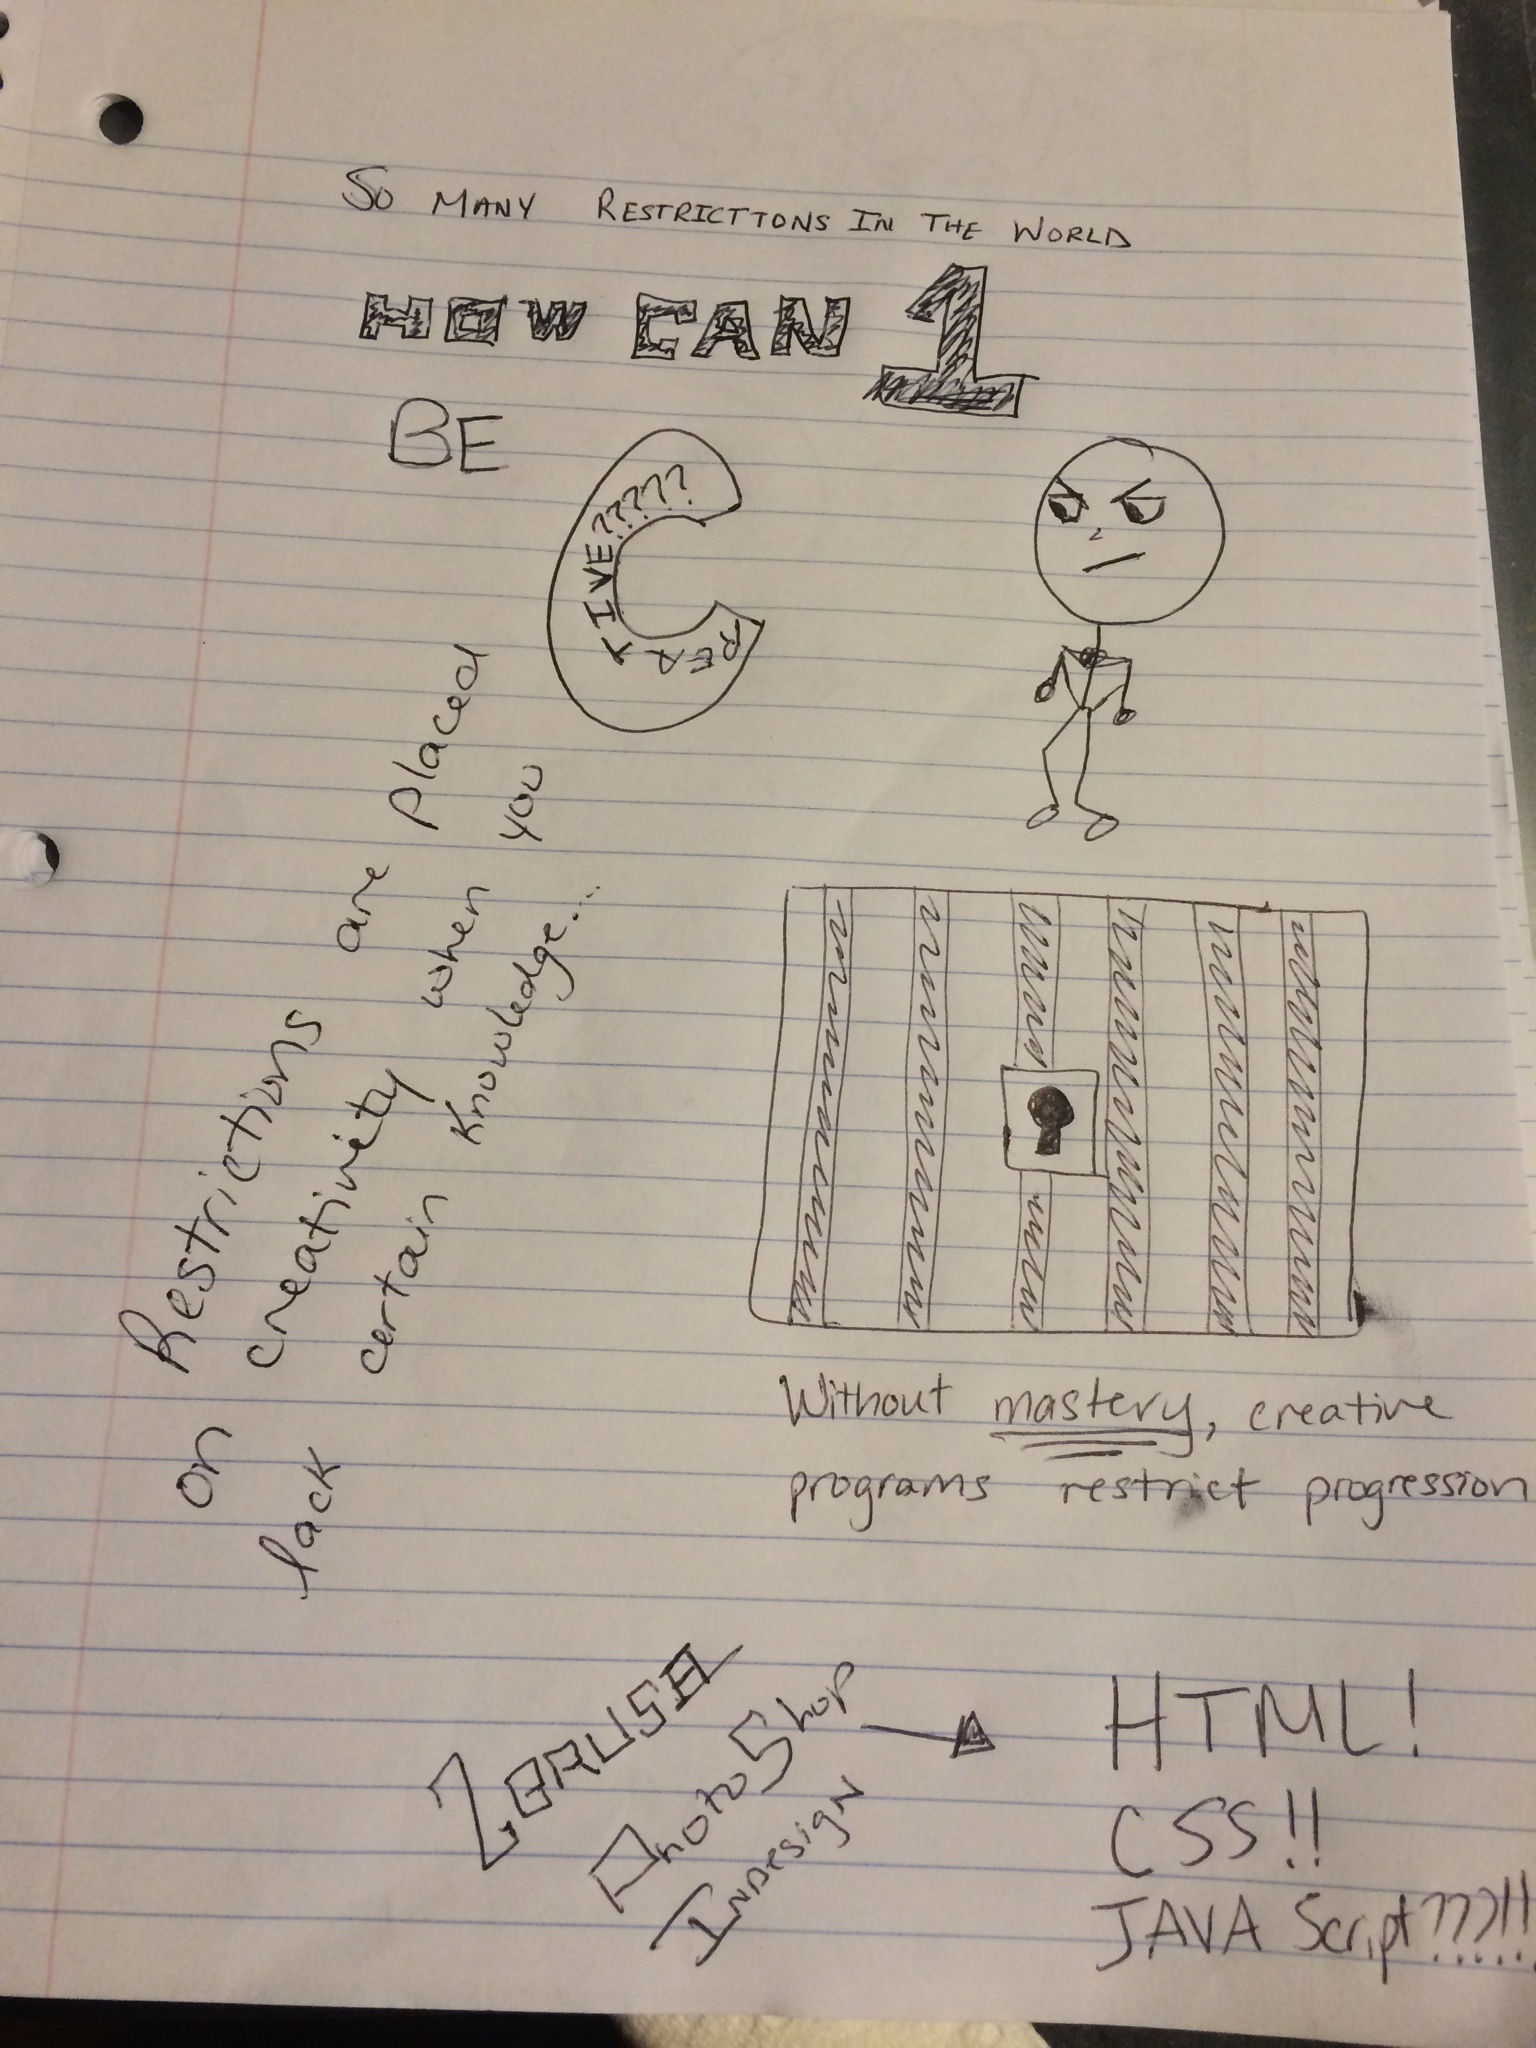 SO MANY RESTRICTTONS IN THE WORLD
HOW CAN 1
BE
CREATIVE?????
Restrictions are placed
on creativity when you
lack certain knowledge...
Without mastery, creative
programs restrict progression
ZBRUSH
PhotoShop
INDesigN
HTML!
CSS!!
JAVA Script???!!!